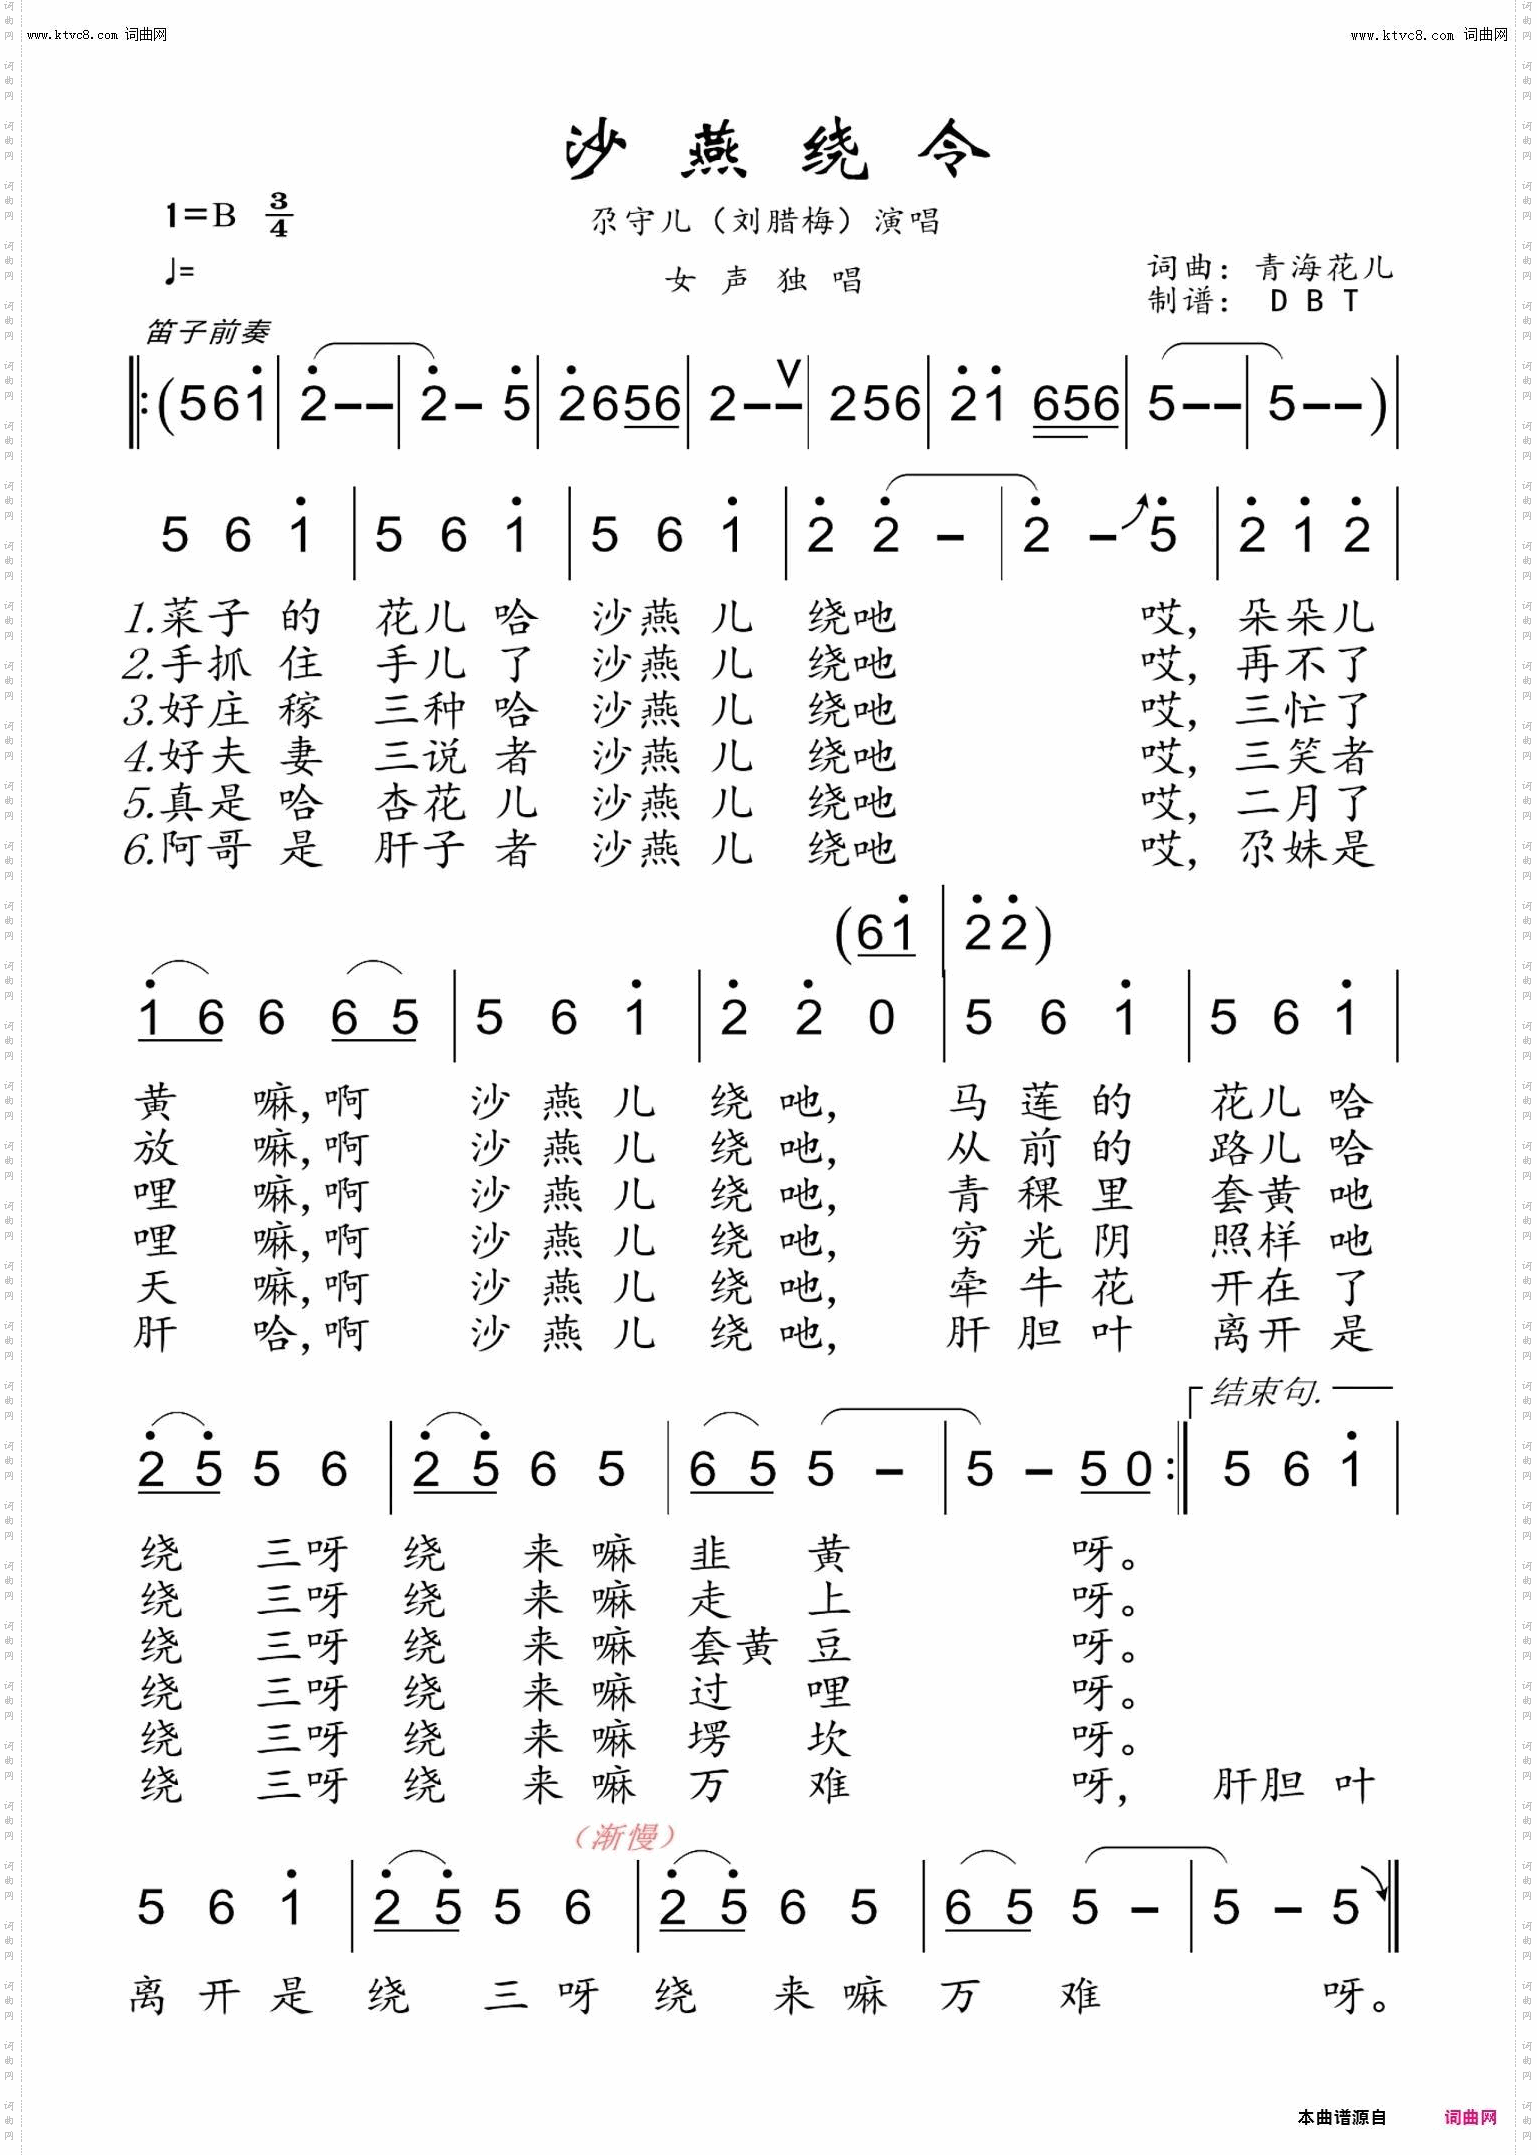 www.ktvc8.com 词曲网
www.ktvc8.com 词曲网
沙燕绕令
1=B 3/4
尕守儿（刘腊梅）演唱
♩=
女声独唱
词曲：青海花儿
制谱： D B T
笛子前奏
‖:(5 6 i̇ | 2̇ - - | 2̇ - 5̇ | 2̇ 6 5 6 | 2 - - V | 2 5 6 | 2̇ i̇ 6 5 6 | 5 - - | 5 - - ) |
5 6 i̇ | 5 6 i̇ | 5 6 i̇ | 2̇ 2̇ - | 2̇ - 5̇ | 2̇ i̇ 2̇ |
1.菜子的 花儿哈 沙燕儿 绕吔 哎，朵朵儿
2.手抓住 手儿了 沙燕儿 绕吔 哎，再不了
3.好庄稼 三种哈 沙燕儿 绕吔 哎，三忙了
4.好夫妻 三说者 沙燕儿 绕吔 哎，三笑者
5.真是哈 杏花儿 沙燕儿 绕吔 哎，二月了
6.阿哥是 肝子者 沙燕儿 绕吔 哎，尕妹是
(6 i̇ | 2̇ 2̇)
i̇ 6 6 6 5 | 5 6 i̇ | 2̇ 2̇ 0 | 5 6 i̇ | 5 6 i̇ |
黄 嘛，啊 沙燕儿 绕吔， 马莲的 花儿哈
放 嘛，啊 沙燕儿 绕吔， 从前的 路儿哈
哩 嘛，啊 沙燕儿 绕吔， 青稞里 套黄吔
哩 嘛，啊 沙燕儿 绕吔， 穷光阴 照样吔
天 嘛，啊 沙燕儿 绕吔， 牵牛花 开在了
肝 哈，啊 沙燕儿 绕吔， 肝胆叶 离开是
结束句.
2̇ 5̇ 5 6 | 2̇ 5̇ 6 5 | 6 5 5 - | 5 - 5 0 :‖ 5 6 i̇ |
绕 三呀 绕 来嘛 韭 黄 呀。
绕 三呀 绕 来嘛 走 上 呀。
绕 三呀 绕 来嘛 套黄 豆 呀。
绕 三呀 绕 来嘛 过 哩 呀。
绕 三呀 绕 来嘛 塄 坎 呀。
绕 三呀 绕 来嘛 万 难 呀， 肝胆叶
（渐慢）
5 6 i̇ | 2̇ 5̇ 5 6 | 2̇ 5̇ 6 5 | 6 5 5 - | 5 - 5 ‖
离开是 绕 三呀 绕 来嘛 万 难 呀。
本曲谱源自 词曲网